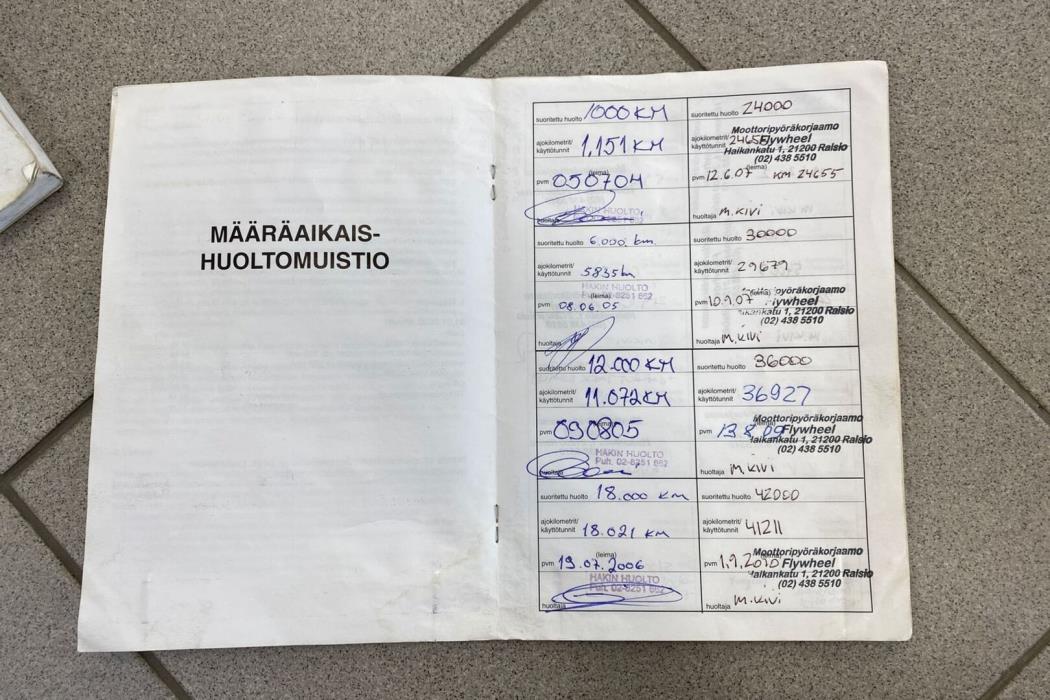 MÄÄRÄAIKAIS-
HUOLTOMUISTIO
suoritettu huolto 1000 KM
ajokilometrit/
käyttötunnit 1,151 KM
(leima)
pvm 050704
HAKIN HUOLTO
huoltaja
suoritettu huolto 6.000 km.
ajokilometrit/
käyttötunnit 5835 km
HAKIN HUOLTO
Puh. 02-8251 662
(leima)
pvm 08.06.05
huoltaja
suoritettu huolto 12.000 KM
ajokilometrit/
käyttötunnit 11.072 KM
(leima)
pvm 090805
HAKIN HUOLTO
Puh. 02-8251 662
huoltaja
suoritettu huolto 18.000 KM
ajokilometrit/
käyttötunnit 18.021 KM
(leima)
pvm 19.07.2006
HAKIN HUOLTO
Puh. 02-8251 662
huoltaja
suoritettu huolto 24000
Moottoripyöräkorjaamo
ajokilometrit/
käyttötunnit 24655 Flywheel
Haikankatu 1, 21200 Raisio
(02) 438 5510
(leima)
pvm 12.6.07 KM 24655
huoltaja M.KIVI
suoritettu huolto 30000
ajokilometrit/
käyttötunnit 29679
(leima)
pvm 10.9.07 Flywheel
1, 21200 Raisio
(02) 438 5510
huoltaja M.KIVI
suoritettu huolto 36000
ajokilometrit/
käyttötunnit 36927
Moottoripyöräkorjaamo
pvm 13.8.09 Flywheel
Haikankatu 1, 21200 Raisio
(02) 438 5510
huoltaja M.KIVI
suoritettu huolto 42000
ajokilometrit/
käyttötunnit 41211
Moottoripyöräkorjaamo
pvm 1.9.2010 Flywheel
Haikankatu 1, 21200 Raisio
(02) 438 5510
huoltaja M.KIVI